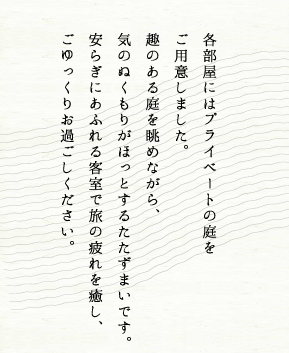 各部屋にはプライベートの庭を
ご用意しました。
趣のある庭を眺めながら、
気のぬくもりがほっとするたたずまいです。
安らぎにあふれる客室で旅の疲れを癒し、
ごゆっくりお過ごしください。